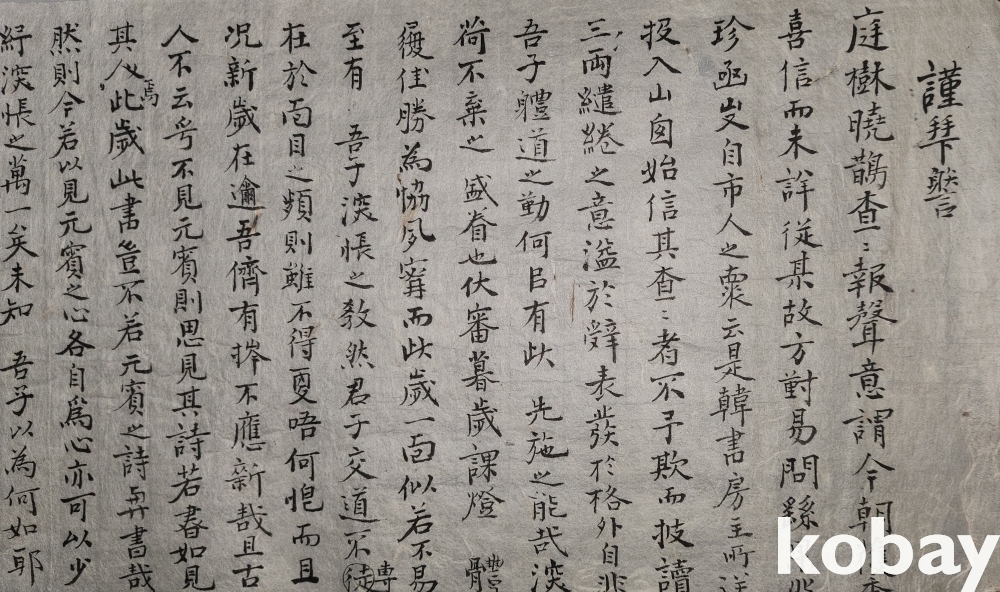 謹拜謦
庭樹曉鵲查〻報聲意謂今朝
喜信而未詳從某故方對易問繇
珍函叟自市人之褁云是韓書房主所
投入山囱始信其查〻者不予欺而披讀
三兩繾綣之意溢於辭表發於格外自非
吾子軆道之勤何㠯有此 先施之能哉深
荷不棄之 盛眷也伏審暮歲課燈 體
履佳勝為協夙寗而此歲一面似若不易
至有 吾子深悵之教然君子交道不徒專
在於面目之頻則雖不得更唔何悒而且
况新歲在邇吾儕有捧不應新哉且古
人不云乎不見元賓則思見其詩若書如見
其人焉此歲此書豈不若元賓之詩與書哉
然則今若以見元賓之心各自爲心亦可以少
紓深悵之萬一矣未知 吾子以為何如耶
kobay